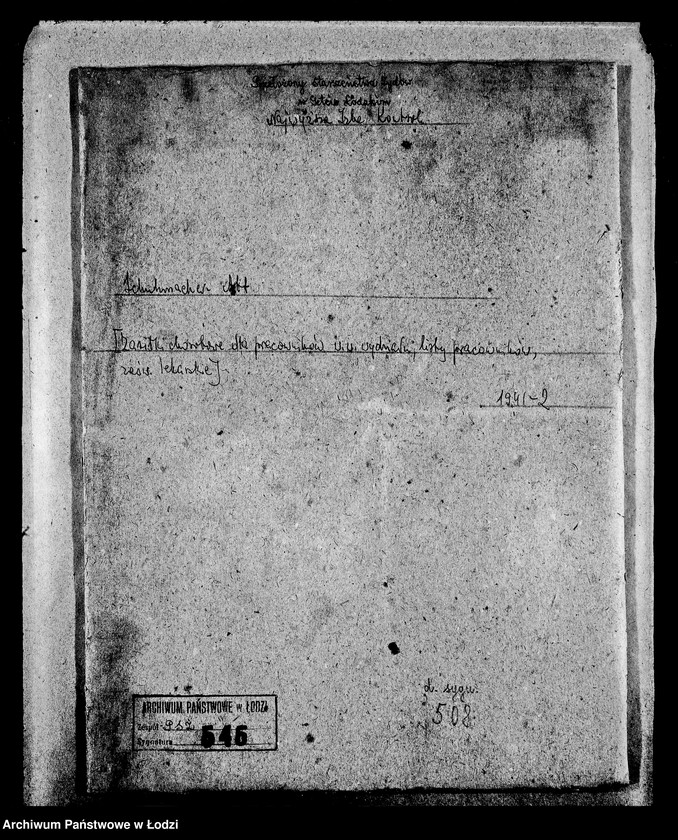 Przełożony Starszeństwa Żydów
w Getcie Łódzkim
Najwyższa Izba Kontroli
Schuhmacher Abt
[Zasiłki chorobowe dla pracowników w/w wydziału; listy pracowników,
zaśw. lekarskie]
1941-2
d. sygn.
508
ARCHIWUM PAŃSTWOWE w ŁODZI
Zespół PSŻ
Sygnatura 546
Archiwum Państwowe w Łodzi